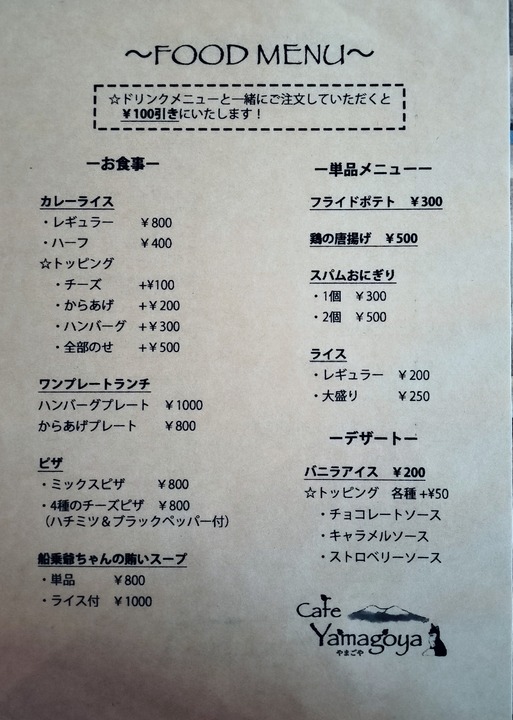 ～FOOD MENU～
☆ドリンクメニューと一緒にご注文していただくと
￥100引きにいたします！
ーお食事ー
カレーライス
・レギュラー ￥800
・ハーフ ￥400
☆トッピング
・チーズ +¥100
・からあげ +￥200
・ハンバーグ +￥300
・全部のせ +￥500
ワンプレートランチ
ハンバーグプレート ￥1000
からあげプレート ￥800
ピザ
・ミックスピザ ￥800
・4種のチーズピザ ￥800
（ハチミツ＆ブラックペッパー付）
船乗爺ちゃんの賄いスープ
・単品 ￥800
・ライス付 ￥1000
ー単品メニューー
フライドポテト ￥300
鶏の唐揚げ ￥500
スパムおにぎり
・1個 ￥300
・2個 ￥500
ライス
・レギュラー ￥200
・大盛り ￥250
ーデザートー
バニラアイス ￥200
☆トッピング 各種 +¥50
・チョコレートソース
・キャラメルソース
・ストロベリーソース
Cafe
Yamagoya
やまごや